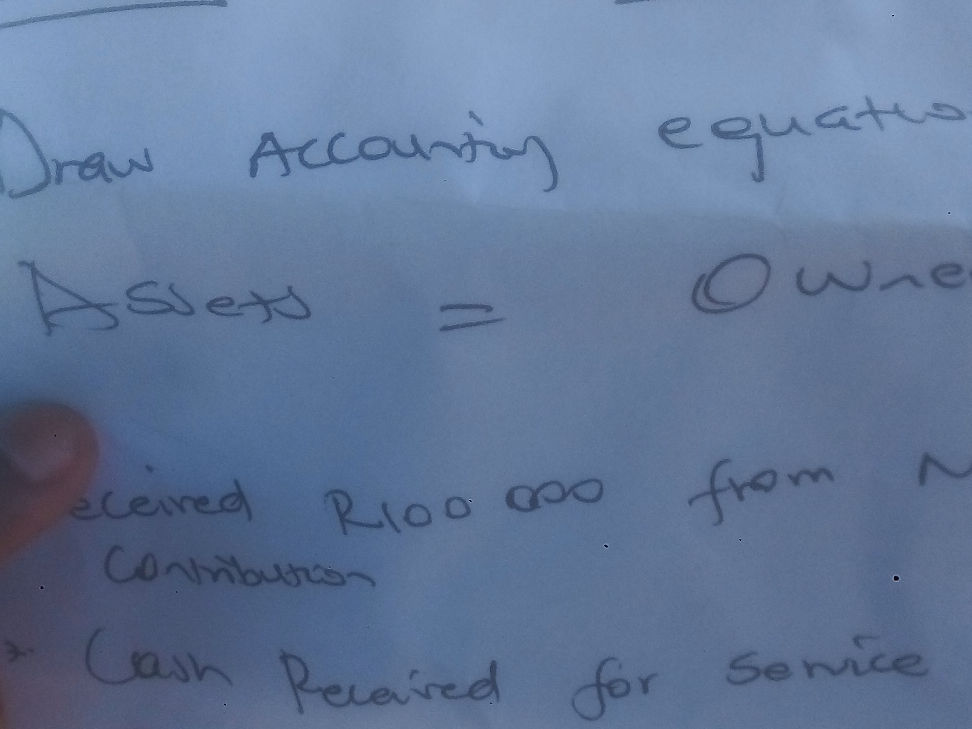 Draw Accounting equatio
Assets = Owne
eceived R100 000 from N
Contribution
* Cash Received for Service